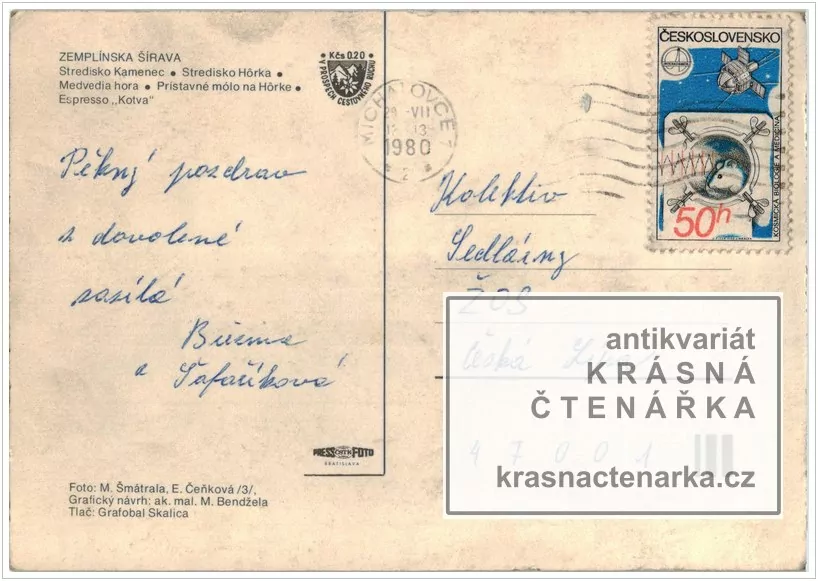 ZEMPLÍNSKA ŠÍRAVA
Stredisko Kamenec • Stredisko Hôrka •
Medvedia hora • Prístavné mólo na Hôrke •
Espresso „Kotva"
• Kčs 0.20 •
V PROSPECH CESTOVNÉHO RUCHU
MICHALOVCE 1
28. VII
12 - 13
1980
2
ČESKOSLOVENSKO
KOSMICKÁ BIOLOGIE A MEDICÍNA
50h
Pěkný pozdrav
z dovolené
zasílá
a Šafaříková
Kolektiv
Sedlárny
ŽOS
Česká
47001
PRESSFOTO
BRATISLAVA
Foto: M. Šmátrala, E. Čeňková /3/,
Grafický návrh: ak. mal. M. Bendžela
Tlač: Grafobal Skalica
antikvariát
KRÁSNÁ
ČTENÁŘKA
krasnactenarka.cz